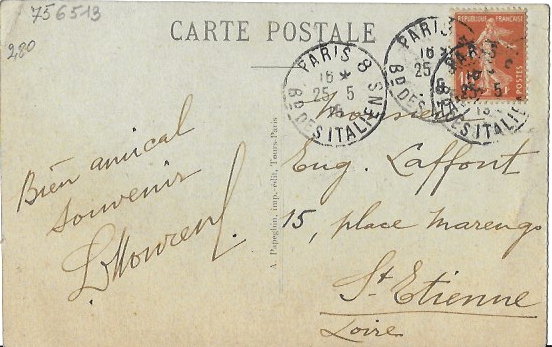 756513
280
CARTE POSTALE
REPUBLIQUE FRANÇAISE
POSTES
PARIS 8
16 *
25 5
BD DES ITALIENS
PARIS
16
25
BD DES
PARIS
25 5
ITALIE
Bien amical
souvenir
Monsieur
Eug. Laffont
15, place Marengo
St Etienne
Loire
A. Papeghin, imp.-édit., Tours-Paris